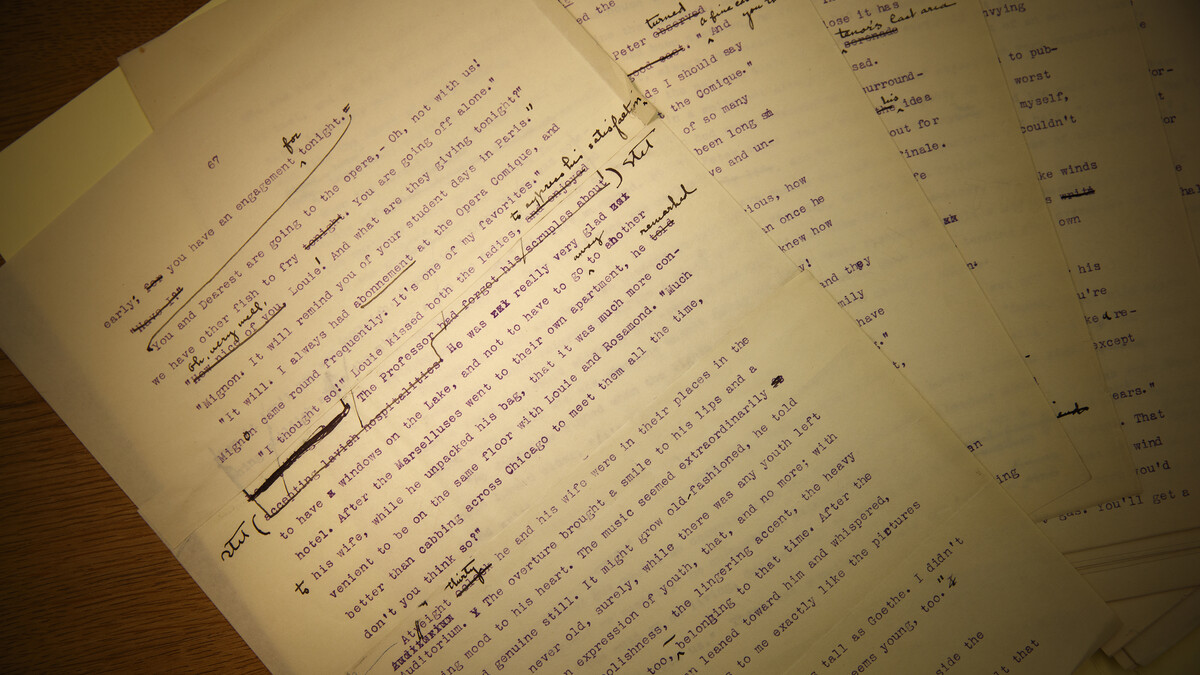 67
for
early; you have an engagement ‸ tonight."
"Have we
You and Dearest are going to the opera,- Oh, not with us!
we have other fish to fry tonight. You are going off alone."
oh, very well
"How nice of you, Louie! And what are they giving tonight?"
"Mignon. It will remind you of your student days in Paris."
"It will. I always had abonnement at the Opera Comique, and
Mignon came round frequently. It's one of my favorites."
to express his satisfaction.
"I thought so!" Louie kissed both the ladies, and enjoyed
The Professor had forgot his scruples about) stet
stet (accepting lavish hospitalities. He was really very glad
to have windows on the Lake, and not to have to go away to another
hotel. After the Marselluses went to their own apartment, he remarked told
to his wife, while he unpacked his bag, that it was much more con-
venient to be on the same floor with Louie and Rosamond. "Much
better than cabbing across Chicago to meet them all the time,
don't you think so?"
thirty
At eight he and his wife were in their places in the
Auditorium
uditorium. The overture brought a smile to his lips and a
ing mood to his heart. The music seemed extraordinarily
d genuine still. It might grow old-fashioned, he told
never old, surely, while there was any youth left
n expression of youth, that, and no more; with
olishness, the lingering accent, the heavy
too, belonging to that time. After the
an leaned toward him and whispered,
to me exactly like the pictures
tall as Goethe. I didn't
seems young, too."
side the
lt that
ed the
turned
Peter observed
a fine
ood
." And you
ds I should say
the Comique."
of so many
been long
ve and un-
ious, how
an once he
knew how
y!
and they
mily
have
."
an
ing
lose it has
tenor's last area
serenade
sad.
urround-
his
the idea
out for
inale.
fe
n.
t,
nvying
to pub-
worst
myself,
couldn't
ke winds
s spite
own
his
u're
ke a re-
except
ears."
. That
wind
you'd
gus. You'll get a
or-
ha